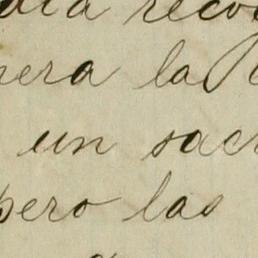 reco
era la
un sacr
pero las